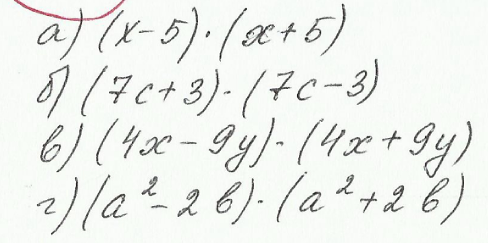 а) (x-5)·(x+5)
б) (7c+3)·(7c-3)
в) (4x-9y)·(4x+9y)
г) (a²-2b)·(a²+2b)